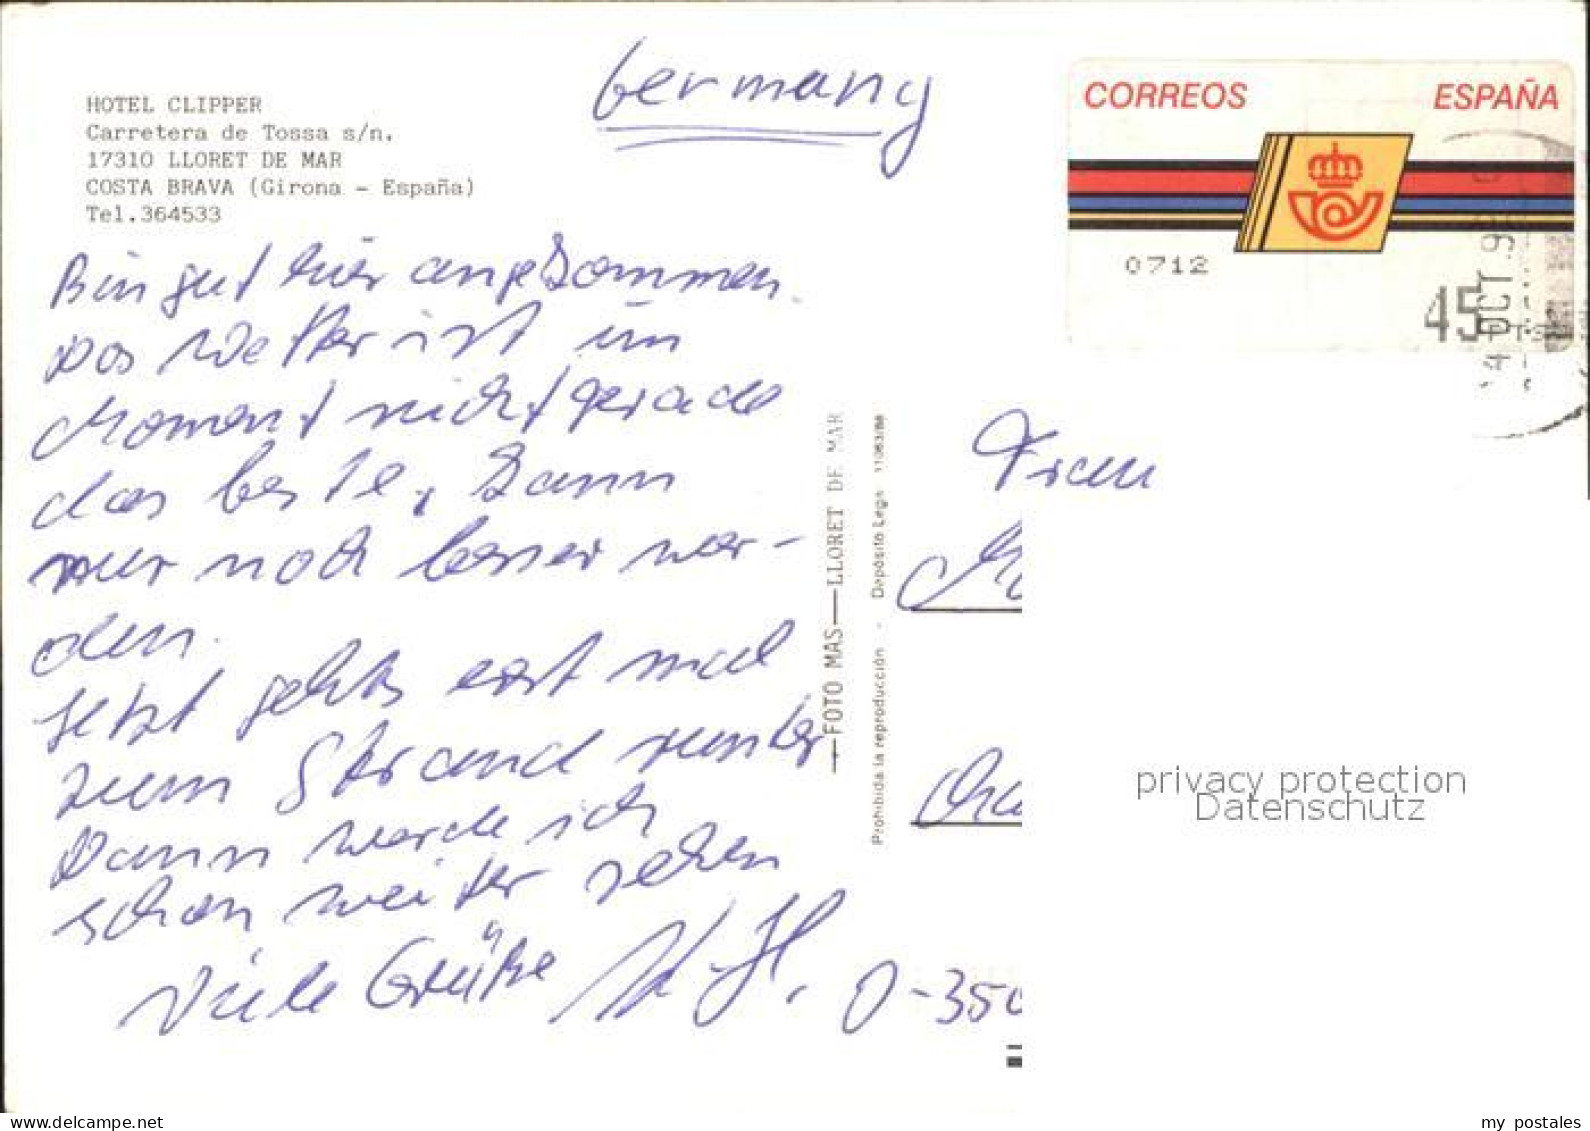 Germany
CORREOS ESPAÑA
0712
45
14 OCT 9
HOTEL CLIPPER
Carretera de Tossa s/n.
17310 LLORET DE MAR
COSTA BRAVA (Girona - España)
Tel.364533
Bin gut hier angekommen.
Das Wetter ist im
Moment nicht gerade
das beste, kann
nur noch besser wer-
den.
Jetzt gehts erst mal
zum Strand runter
Dann werde ich
schon weiter sehen
Viele Grüße K-H.
FOTO MAS LLORET DE MAR
Prohibida la reproducción - Depósito Lega 11063/88
Frau
O-350
privacy protection
Datenschutz
www.delcampe.net
my_postales